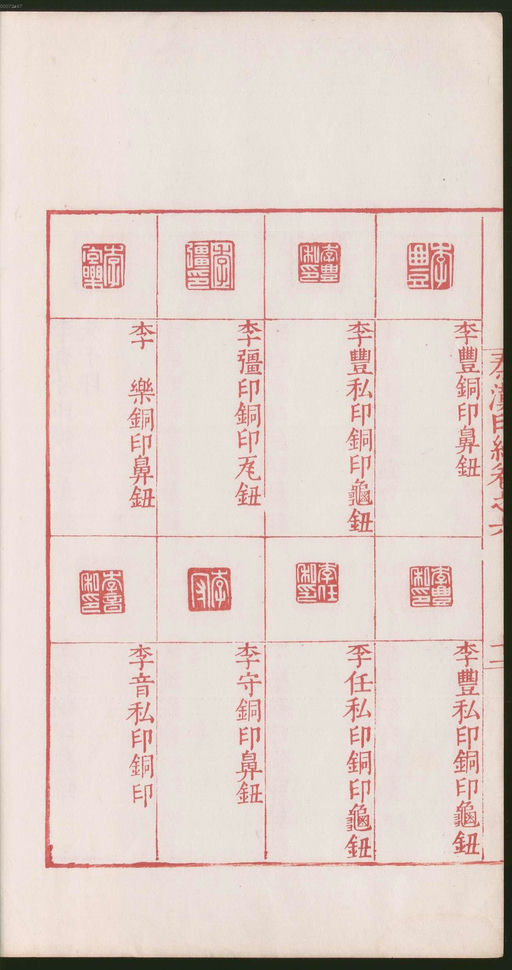 秦漢印統卷之六
二
李豐銅印鼻鈕
李豐私印銅印龜鈕
李彊印銅印瓦鈕
李　樂銅印鼻鈕
李豐私印銅印龜鈕
李任私印銅印龜鈕
李守銅印鼻鈕
李音私印銅印